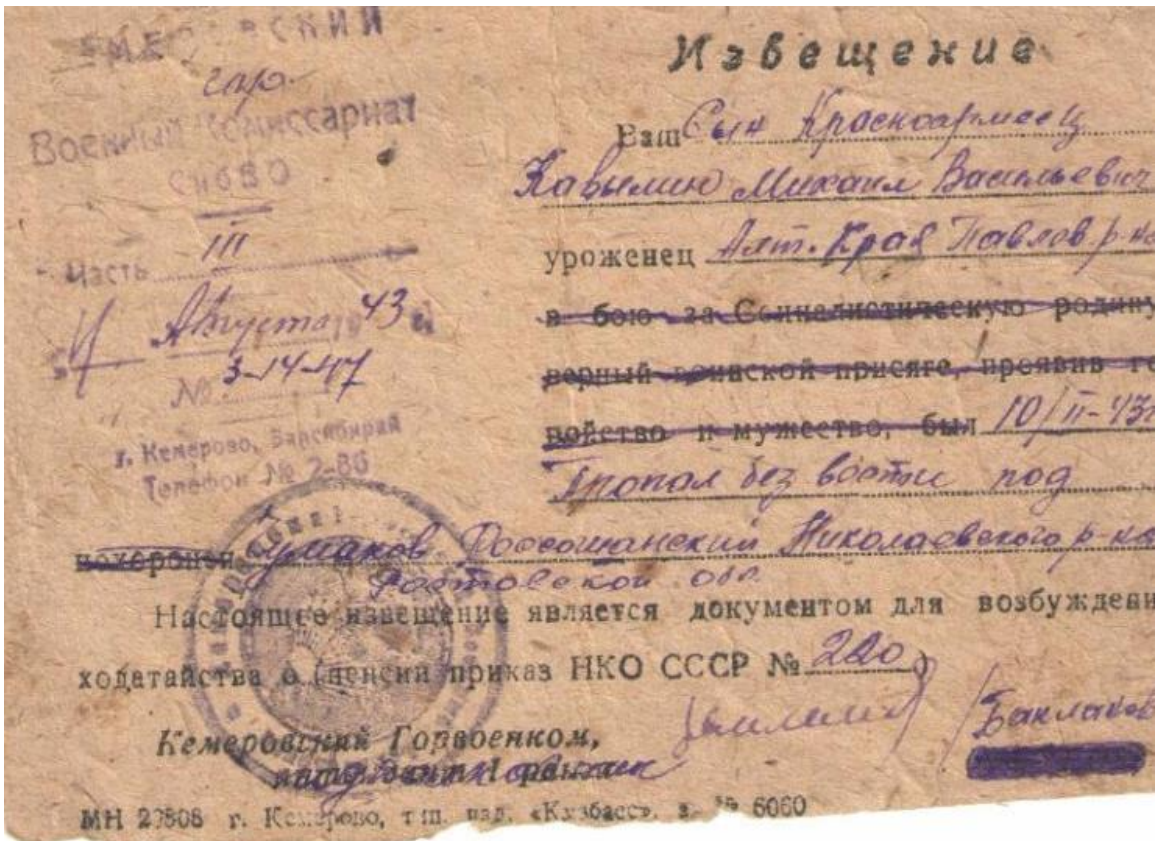 гор.
Военный Комиссариат
СибВО
Часть III
Августа 1943 г.
№ 3-14-47
г. Кемерово, Запсибкрай
Телефон № 2-86
Извещение
Ваш Сын Красноармеец
Кавылин Михаил Васильевич
уроженец Алт. Край Павлов р-на
в бою за Социалистическую родину
верный воинской присяге, проявив ге
ройство и мужество, был 10/II-43г
Пропал без вести под
похоронен Россошанский Николаевского р-на
Ростовской обл.
Настоящее извещение является документом для возбуждения
ходатайства о пенсии приказ НКО СССР № 220
Баклаков
Кемеровский Горвоенком,
интендант 1 ранга
МН 20808 г. Кемерово, тип. изд. «Кузбасс». з. № 6060